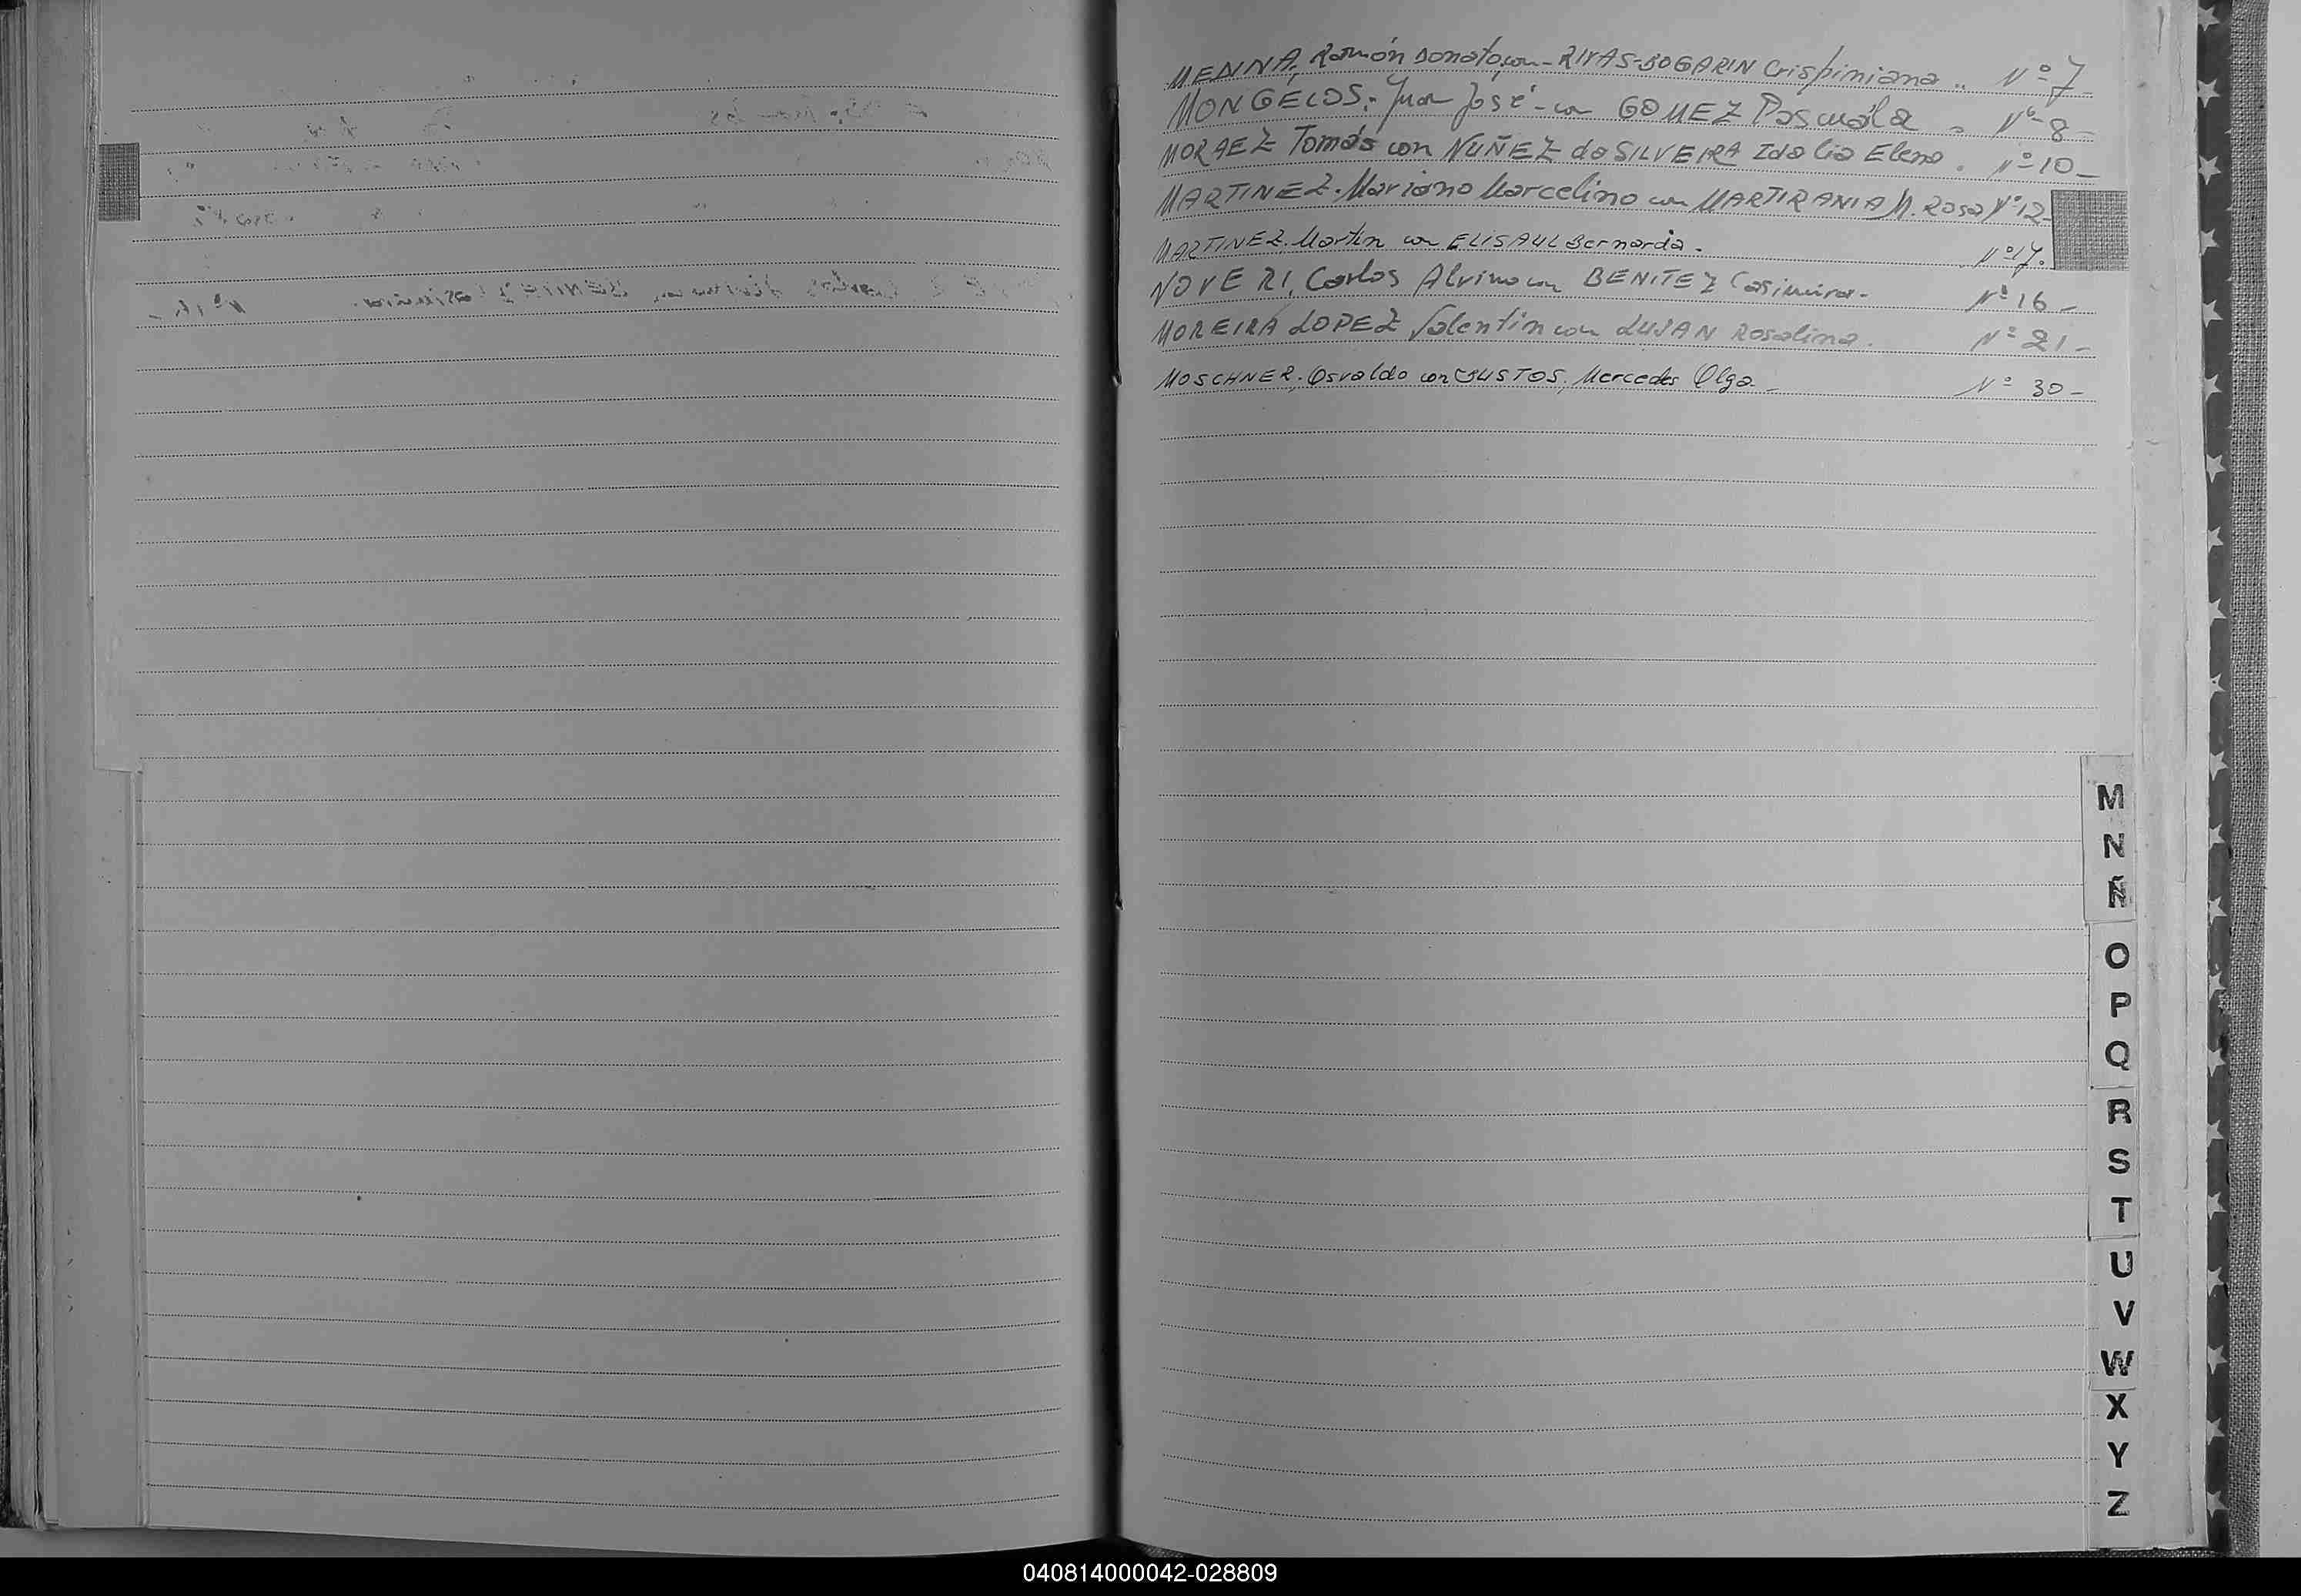 MENNA, Ramón Donato, con - RIVAS-BOGARIN Crispiniana .. Nº 7-
MONGELOS.- Juan José - con GOMEZ Pascuala . Nº 8-
MORAEZ Tomás con NUÑEZ da SILVEIRA Idalia Elena . Nº 10-
MARTINEZ. Mariano Marcelino con MARTIRANIA M. Rosa Nº 12-
MARTINEZ. Martin con ELISAUL Bernarda. Nº 17.
NOVERI, Carlos Alvino con BENITEZ Casimira- Nº 16-
MOREIRA LOPEZ Valentin con LUJAN Rosalina. Nº 21-
MOSCHNER. Osvaldo con JUSTOS, Mercedes Olga- Nº 30-
M
N
Ñ
O
P
Q
R
S
T
U
V
W
X
Y
Z
040814000042-028809